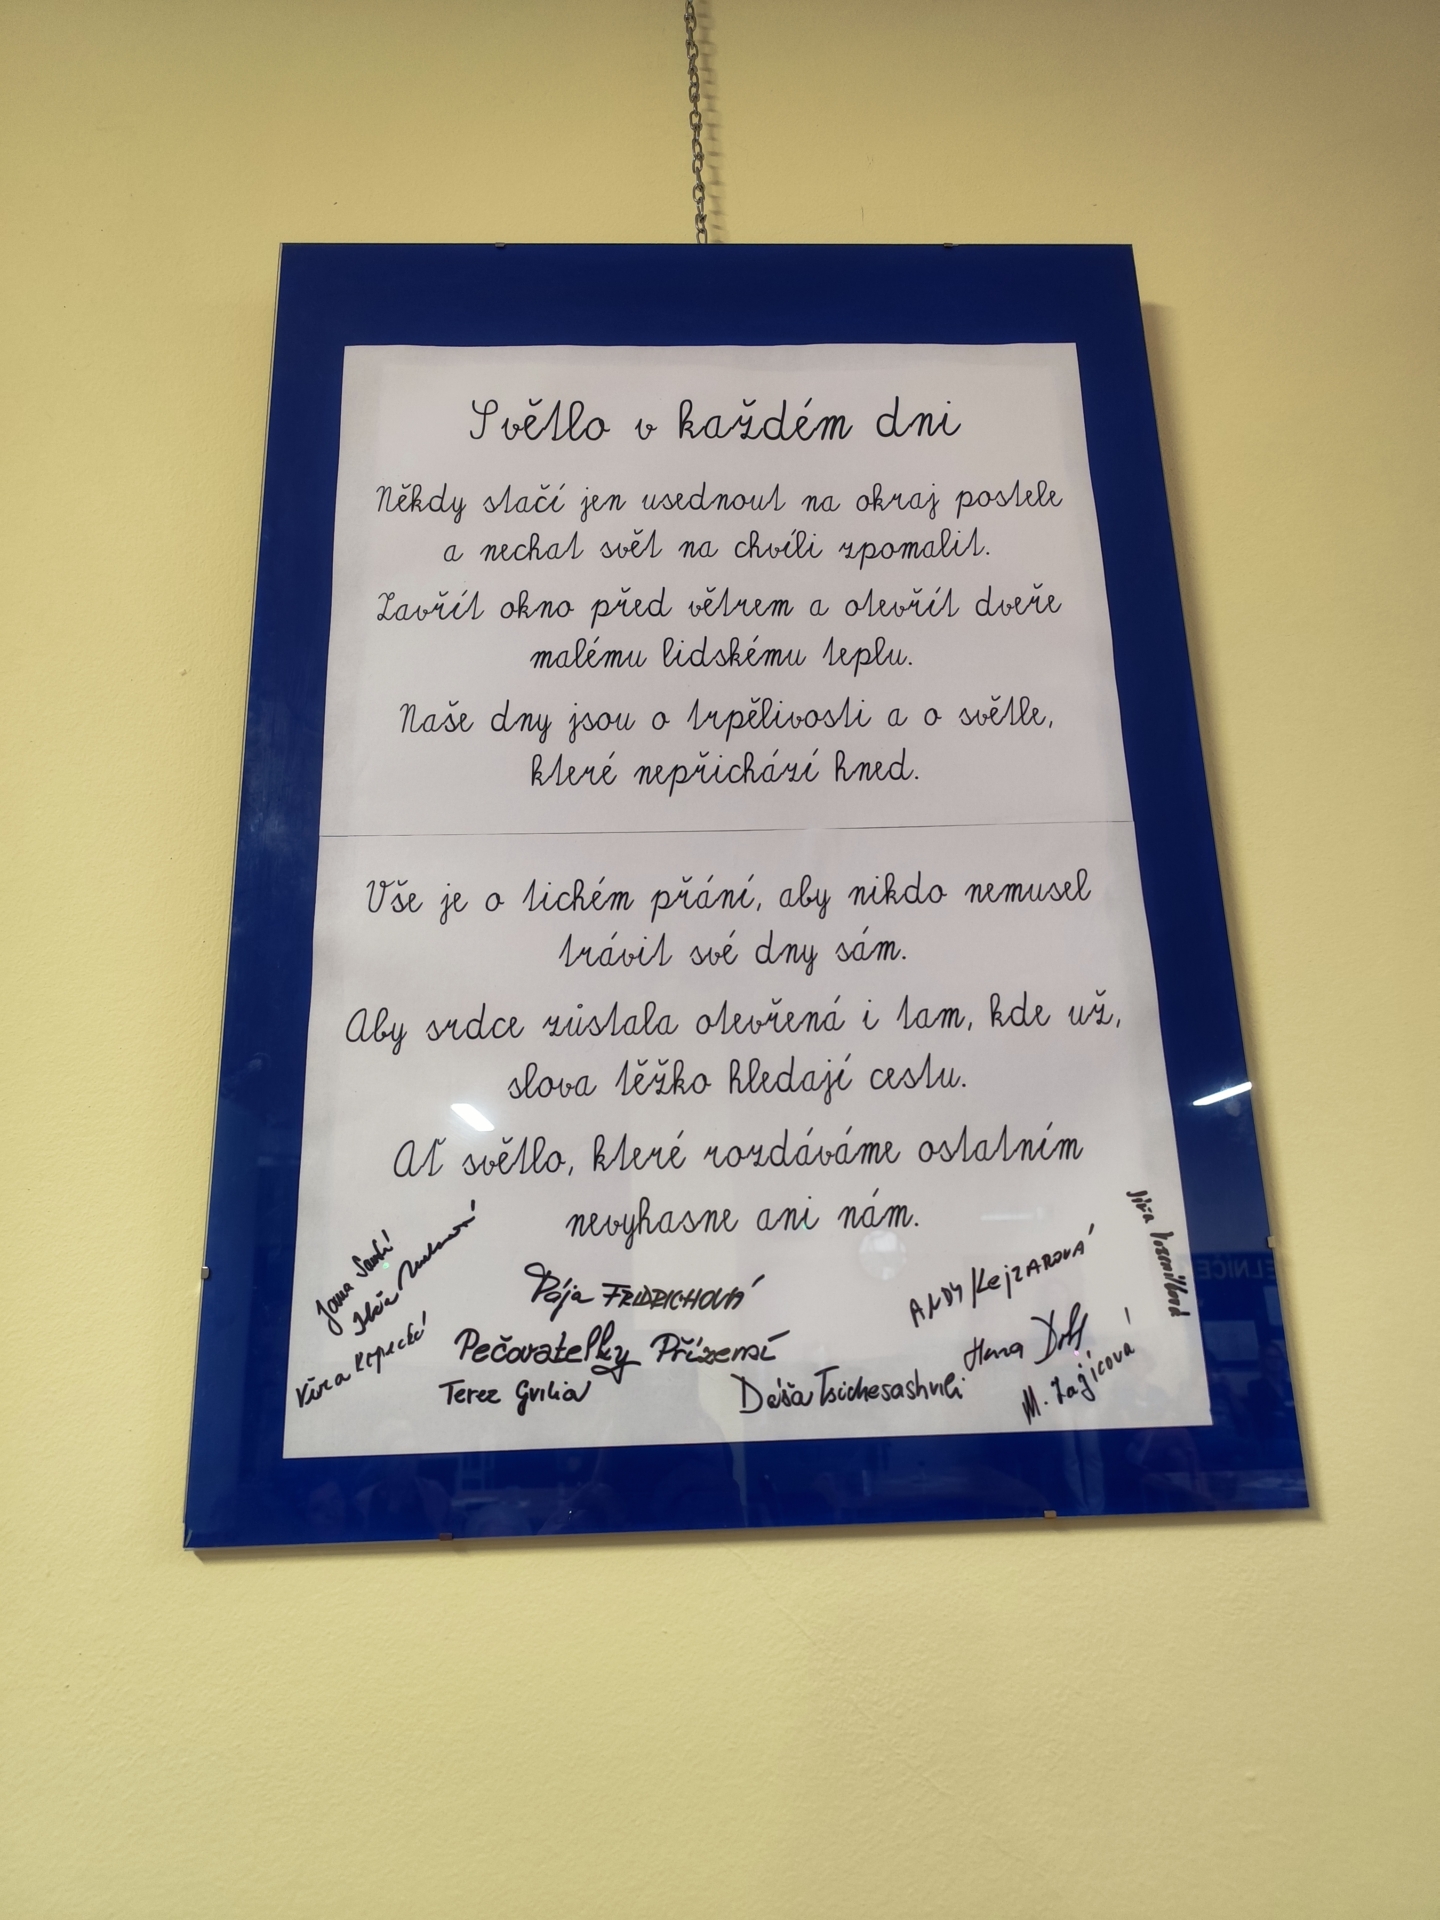 Světlo v každém dni
Někdy stačí jen usednout na okraj postele
a nechat svět na chvíli zpomalit.
Zavřít okno před větrem a otevřít dveře
malému lidskému teplu.
Naše dny jsou o trpělivosti a o světle,
které nepřichází hned.
Vše je o tichém přání, aby nikdo nemusel
trávit své dny sám.
Aby srdce zůstala otevřená i tam, kde už,
slova těžko hledají cestu.
Ať světlo, které rozdáváme ostatním
nevyhasne ani nám.
Jana
Věra
Pája FRIDRICHOVÁ
Pečovatelky Přízemí
Terez Gvilia
Dáša Tsichesashvili
ANDY KejzAROVÁ
Hana
M. Zajícová